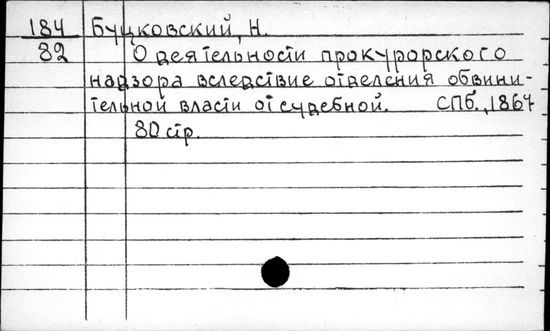 184 Буцковский, Н.
82 О деятельности прокурорского
надзора вследствие отделения обвини-
тельной власти от судебной. СПб., 1867
80 стр.